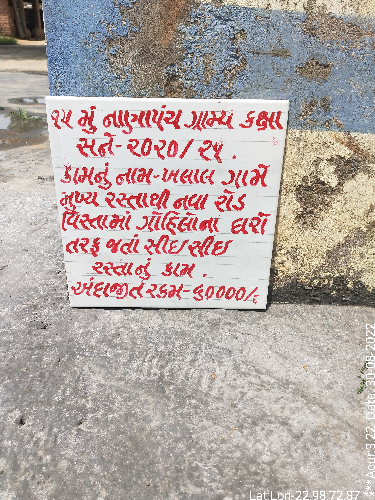 ૨૫ મું નાણાપંચ ગ્રામ્ય કક્ષા
સને-૨૦૨૦/૨૧.
કામનું નામ-ખલાલ ગામે
મુખ્ય રસ્તાથી નવા રોડ
વિસ્તામાં ગોહિલોના ઘારો
તરફ જતો સીઇસીઇ
રસ્તાનું કામ.
અંદાજીત રકમ-૬૦૦૦૦/-
Lat Lon-22.98,72.87
Acur:3.22, Date: 30-08-2022